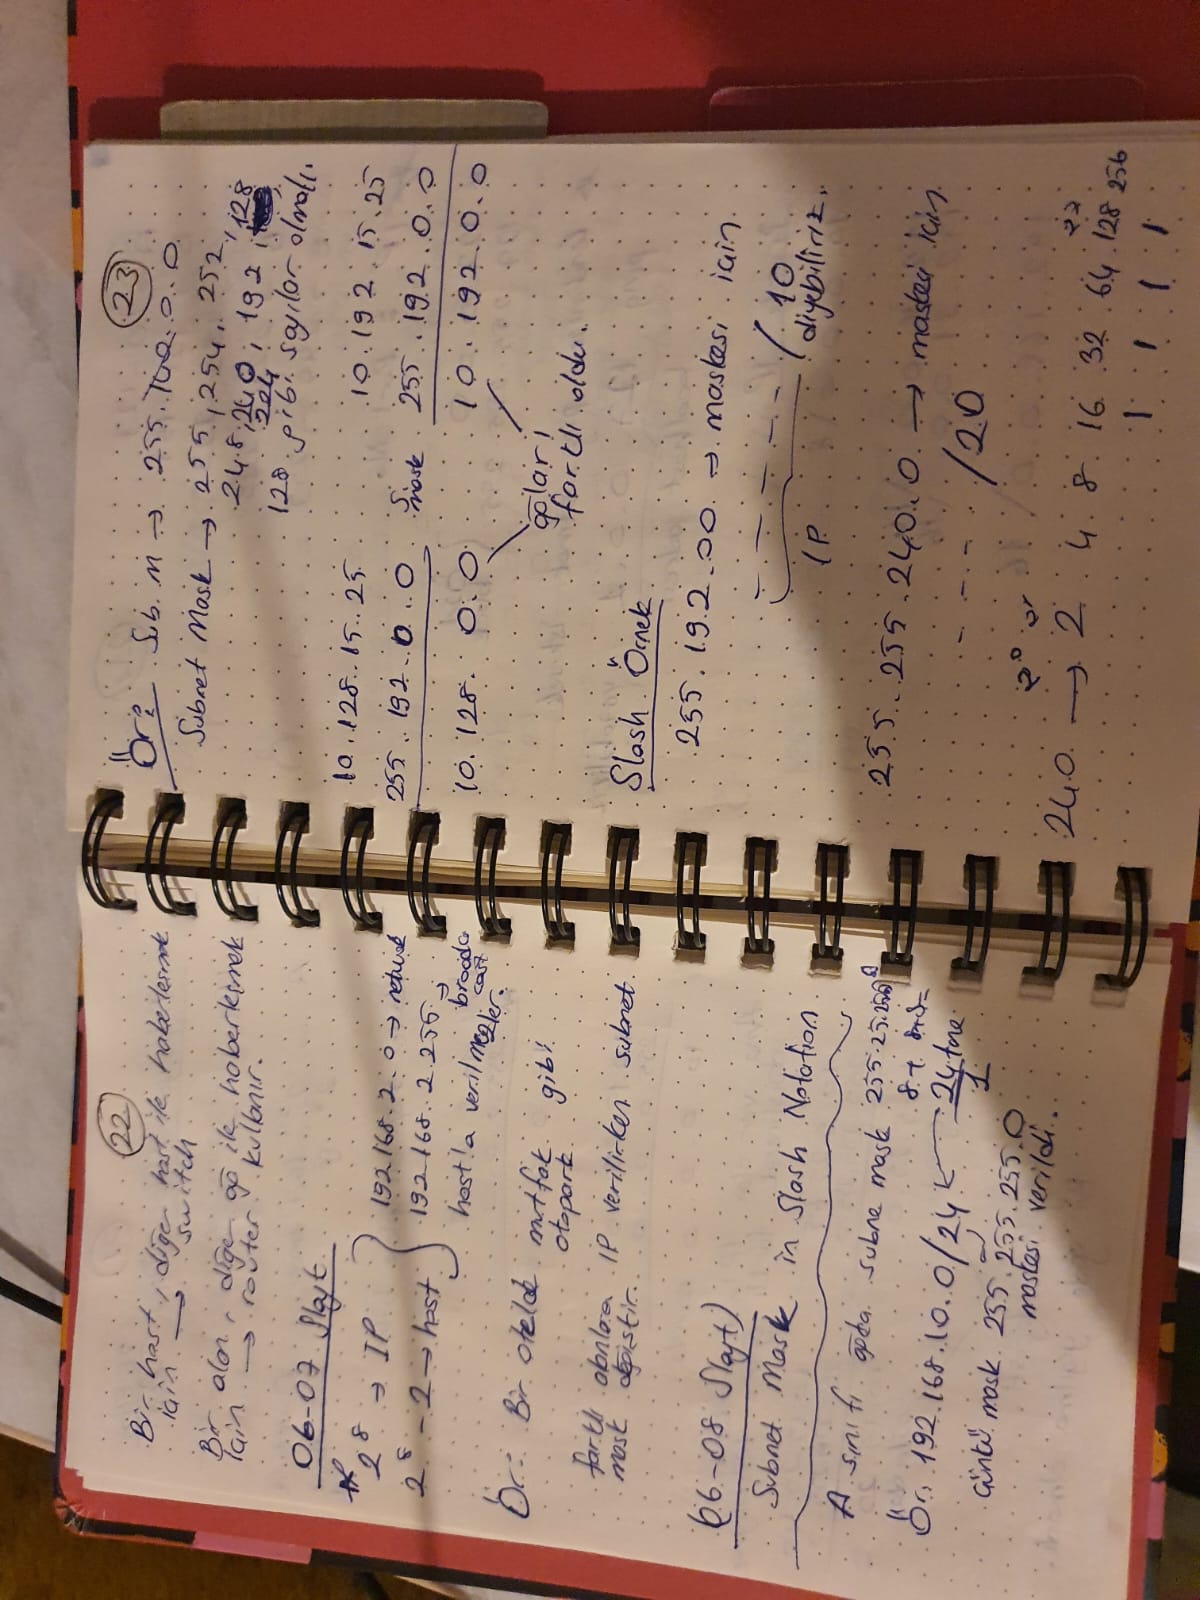 22
Bir host, diğer host ile haberleşmek
için → switch
Bir alan, diğer ağ ile haberleşmek
için → router kullanır.
06-07 Slayt
2^8 → IP
2^8 - 2 → host
192.168.2.0 → network
192.168.2.255 →
broadcast
host'a verilmezler.
Ör: Bir otelde mutfak gibi
otopark
farklı alanlara IP verilirken subnet
mask değiştir.
(06-08 Slayt)
Subnet Mask in Slash Notation
A sınıfı ağda subne mask 255.25.255.0
8+ 8+8=
Ör, 192.168.10.0/24 ← 24 tane
1
Çünkü mask 255.255.255.0
maskesi verildi.
23
Ör: Sub. M → 255.100.0.0
Subnet Mask → 255, 254, 252,
248, 240, 192, 128
224
128 gibi sayılar olmalı.
10.128.15.25 10.192.15.25
255.192.0.0 S. mask 255.192.0.0
10.128.0.0 10.192.0.0
ağları
farklı oldu.
Slash Örnek
255.192.00 → maskesi için
- - - - - - / 10
IP diyebiliriz.
255.255.240.0 → maskesi için
- - - - /20
2^0 2^1
2^7
240 → 2 4 8 16 32 64 128 256
1 1 1 1